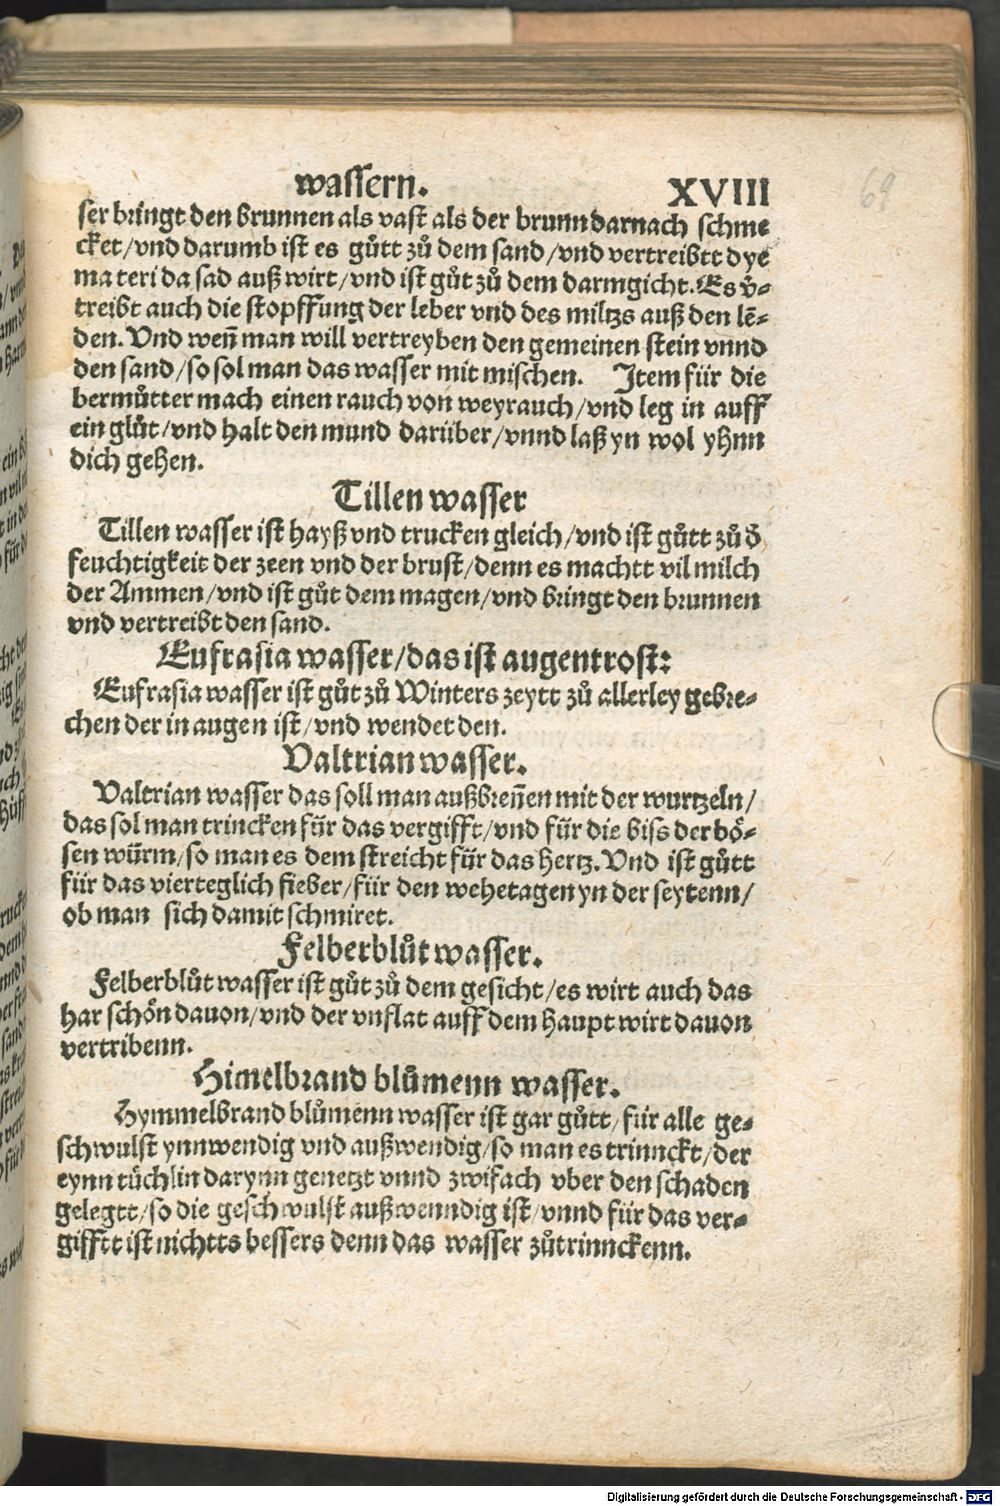 wassern. XVIII
69
ser bringt den brunnen als vast als der brunn darnach schme
cket/vnd darumb ist es gůtt zů dem sand/vnd vertreibtt dye
materi da sad auß wirt/vnd ist gůt zů dem darmgicht. Es v̄-
treibt auch die stopffung der leber vnd des miltzs auß den lē-
den. Vnd wen̄ man will vertreyben den gemeinen stein vnnd
den sand/so sol man das wasser mit mischen. Item für die
bermůtter mach einen rauch von weyrauch/vnd leg in auff
ein glůt/vnd halt den mund darüber/vnnd laß yn wol yhnn
dich gehen.
Tillen wasser
Tillen wasser ist hayß vnd trucken gleich/vnd ist gůtt zů d̄
feuchtigkeit der zeen vnd der brust/denn es machtt vil milch
der Ammen/vnd ist gůt dem magen/vnd bringt den brunnen
vnd vertreibt den sand.
Eufrasia wasser/das ist augentrost:
Eufrasia wasser ist gůt zů Winters zeytt zů allerley gebre-
chen der in augen ist/vnd wendet den.
Valtrian wasser.
Valtrian wasser das soll man außbren̄en mit der wurtzeln/
das sol man trincken für das vergifft/vnd für die biss der bö-
sen würm/so man es dem streicht für das hertz. Vnd ist gůtt
für das vierteglich fieber/für den wehetagen yn der seytenn/
ob man sich damit schmiret.
Felberblůt wasser.
Felberblůt wasser ist gůt zů dem gesicht/es wirt auch das
har schön dauon/vnd der vnflat auff dem haupt wirt dauon
vertribenn.
Himelbrand blůmenn wasser.
Hymmelbrand blůmenn wasser ist gar gůtt/für alle ge-
schwulst ynnwendig vnd außwendig/so man es trinnckt/der
eynn tüchlin darynn genetzt vnnd zwifach vber den schaden
gelegtt/so die geschwulst außwenndig ist/vnnd für das ver-
gifftt ist nichtts bessers denn das wasser zůtrinnckenn.
Digitalisierung gefördert durch die Deutsche Forschungsgemeinschaft - DFG